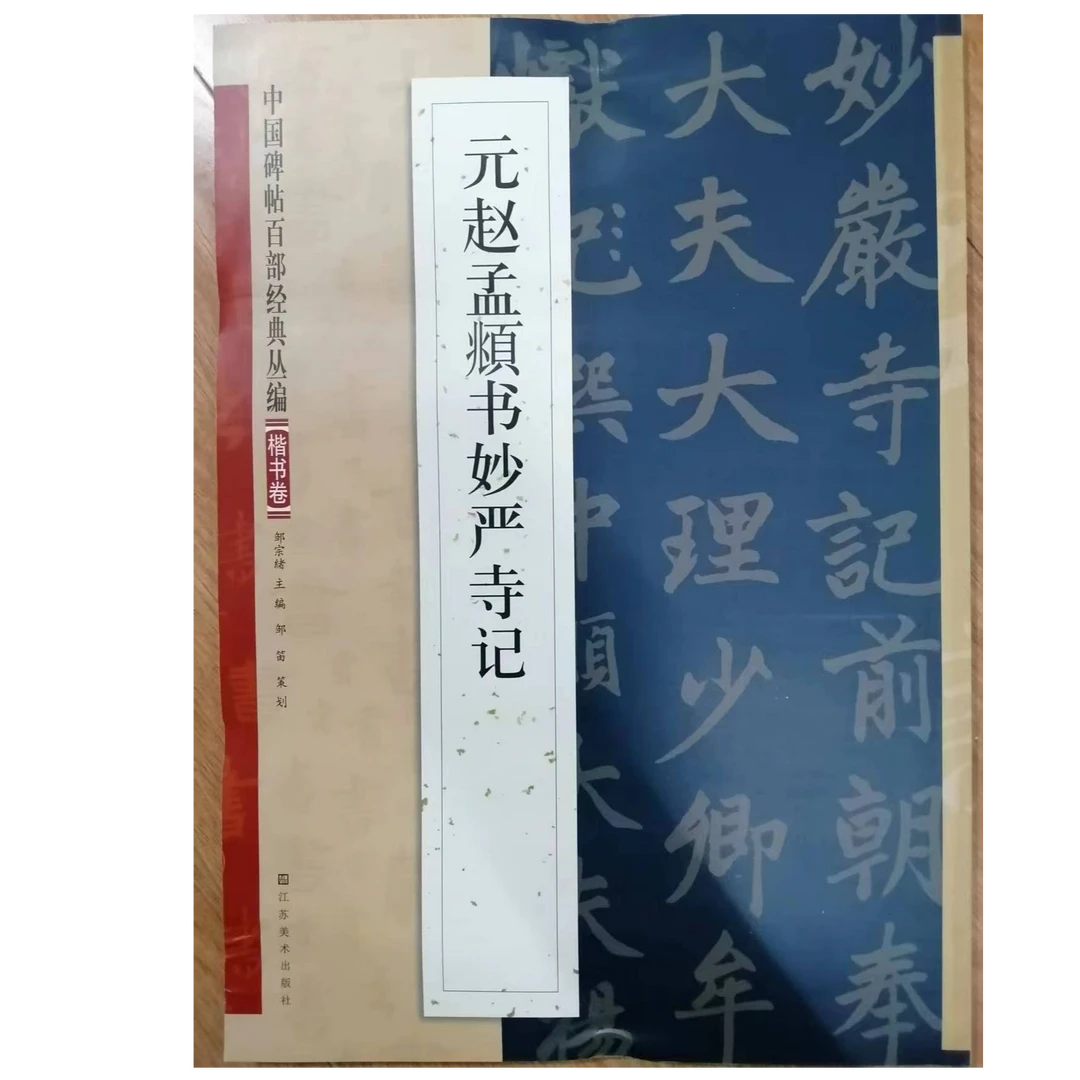 妙嚴寺記前朝奉
大夫大理少卿牟
巘記撰中順大夫揚
元赵孟頫书妙严寺记
中国碑帖百部经典丛编
楷书卷
邹宗绪 主编 邹笛 策划
江苏美术出版社